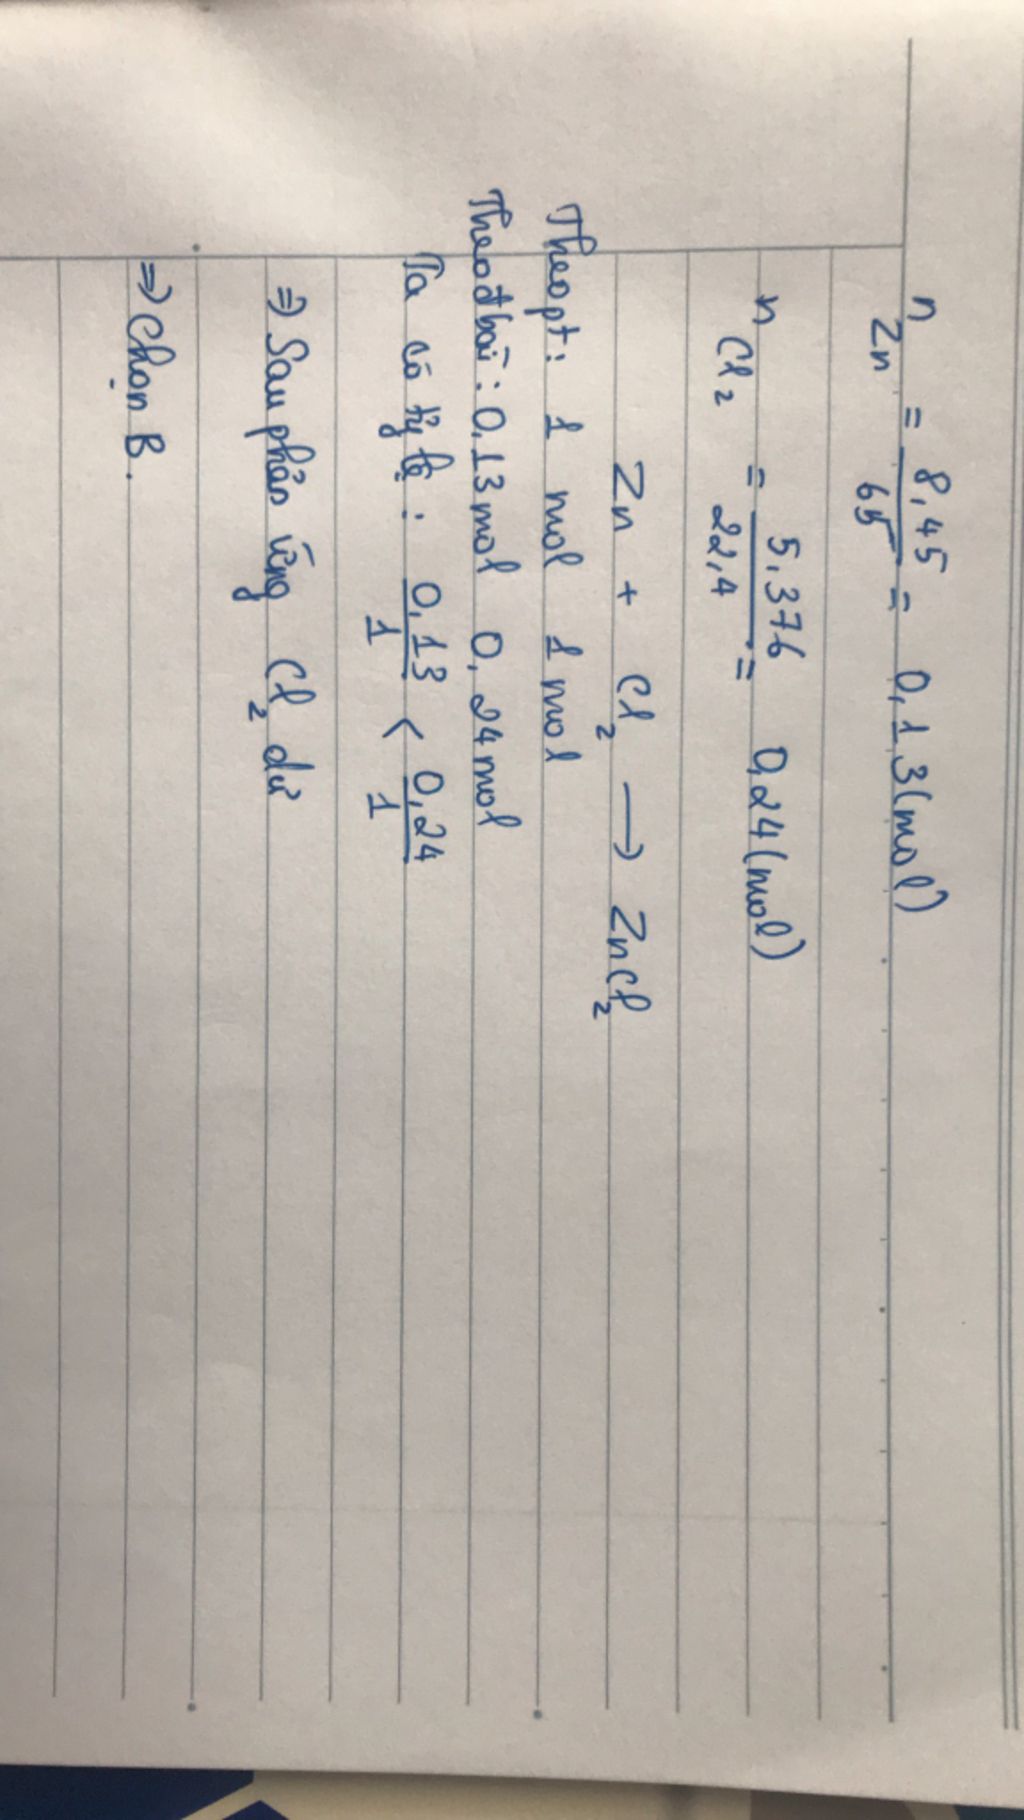 n Zn = 8,45/65 = 0,13(mol)
n Cl₂ = 5,376/22,4 = 0,24(mol)
Zn + Cl₂ ⟶ ZnCl₂
Theo pt: 1 mol 1 mol
Theo đbài: 0,13mol 0,24mol
Ta có tỷ lệ: 0,13/1 < 0,24/1
⇒ Sau phản ứng Cl₂ dư
⇒ Chọn B.